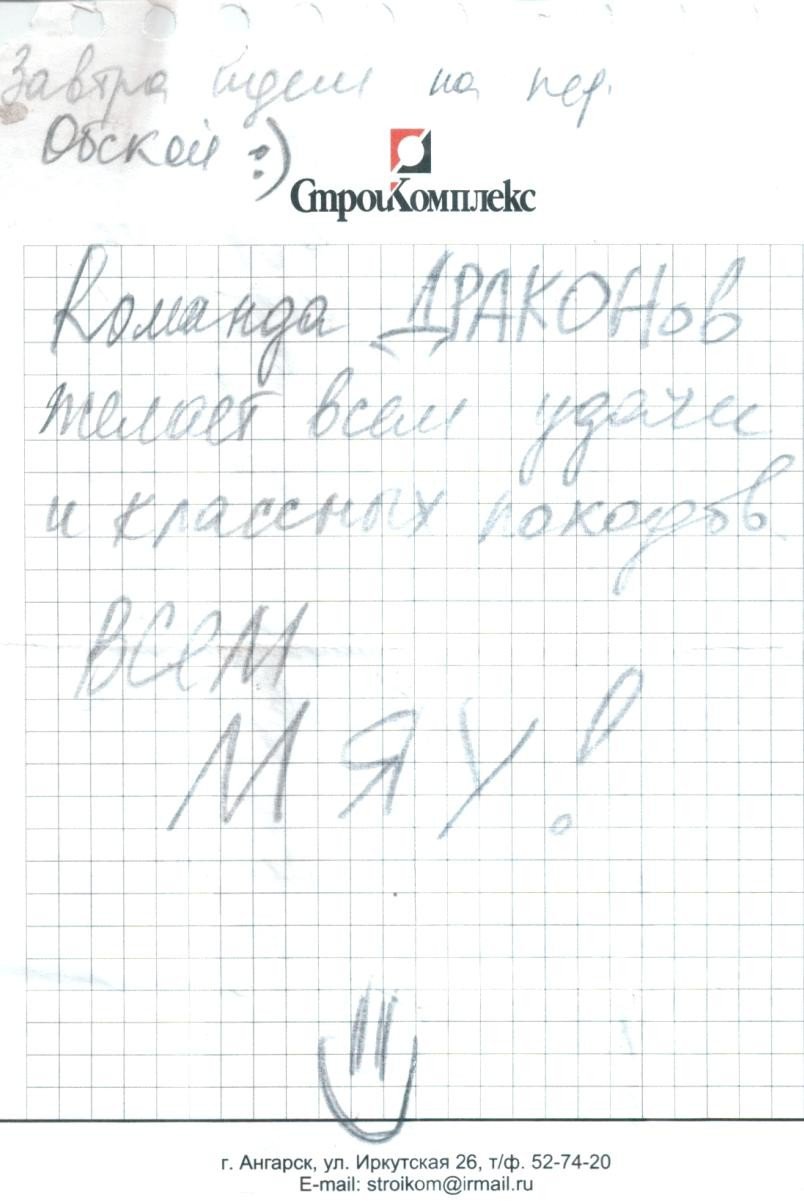 Завтра идем на пер.
Обской :)
СтройКомплекс
Команда ДРАКОНов
желает всем удачи
и классных походов.
ВСЕМ
МЯУ!
г. Ангарск, ул. Иркутская 26, т/ф. 52-74-20
E-mail: stroikom@irmail.ru